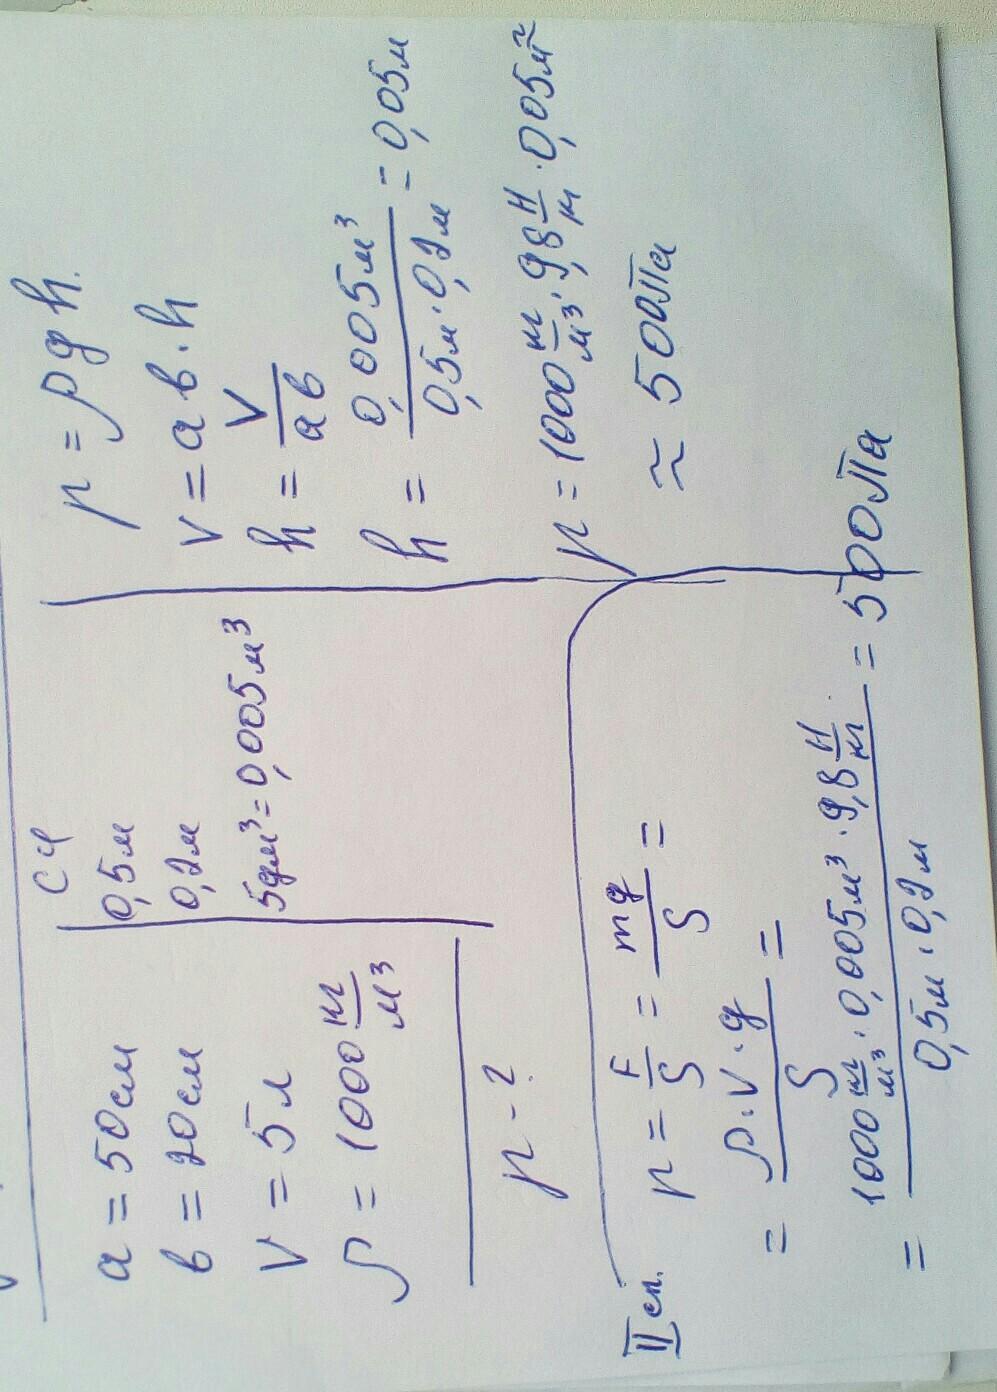 a = 50см
в = 20см
V = 5л
ρ = 1000 кг/м³
p - ?
СИ
0,5м
0,2м
5дм³ = 0,005м³
p = ρgh.
V = aв·h
h = V/aв
h = 0,005м³/0,5м·0,2м = 0,05м
p = 1000 кг/м³ · 9,8 Н/кг · 0,05м ≈
≈ 500Па
II сп.
p = F/S = mg/S =
= ρ·V·g/S =
= 1000 кг/м³ · 0,005м³ · 9,8 Н/кг / 0,5м · 0,2м = 500Па